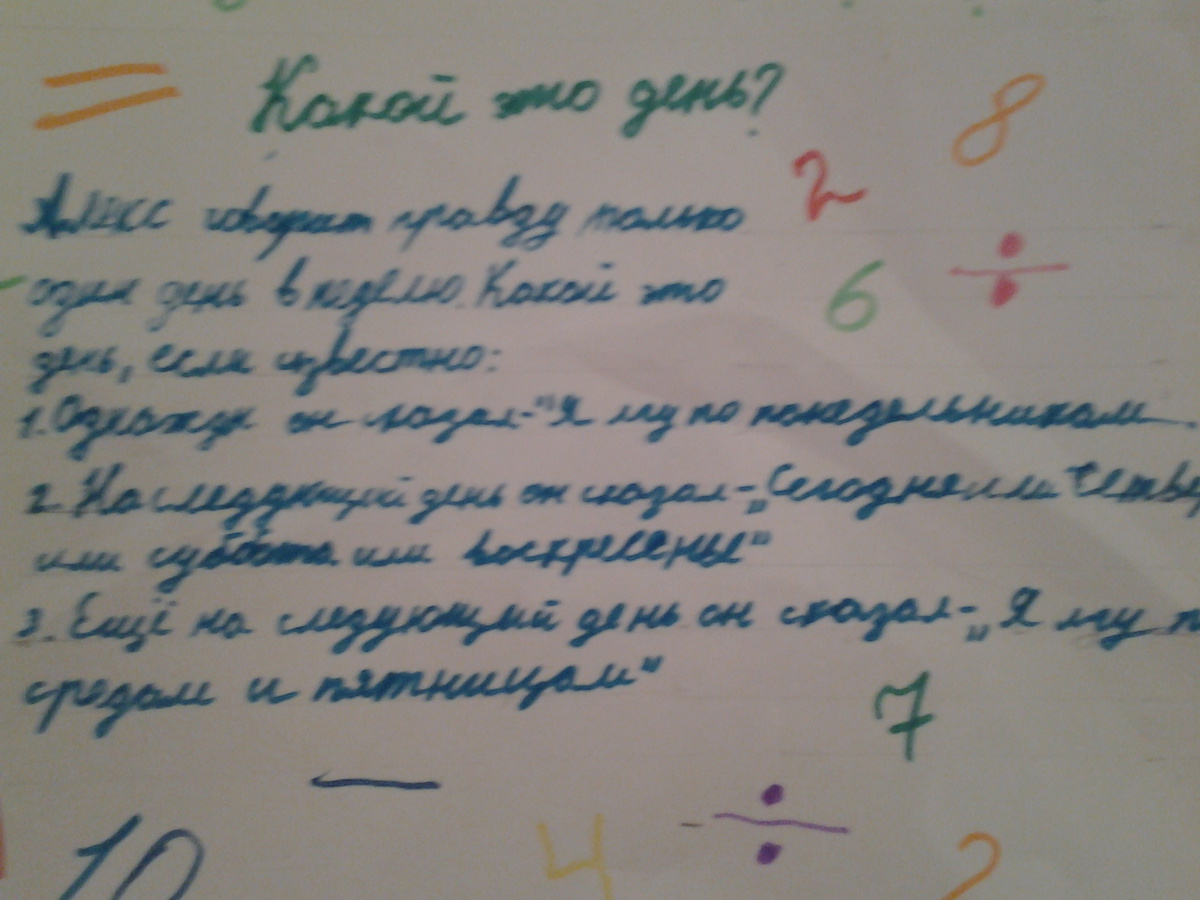 Какой это день?
Алекс говорит правду только
один день в неделю. Какой это
день, если известно:
1. Однажды он сказал-"Я лгу по понедельникам
2. На следующий день он сказал-„Сегодня или Четвер
или суббота или воскресенье"
3. Ещё на следующий день он сказал-„Я лгу п
средам и пятницам"
8
2
÷
6
7
÷
10
4
2